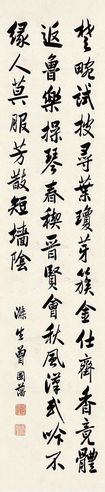 楚畹試披尋葉瓊芽簇金仕齊香竟體
返魯樂操琴春禊晉賢會秋風漢武吟不
緣人莫服芳散短墻陰
滌生曾國藩